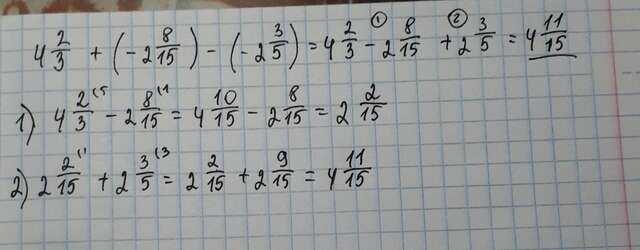 4 2/3 + (-2 8/15) - (-2 3/5) = 4 2/3 -① 2 8/15 +② 2 3/5 = 4 11/15
1) 4 2/3 (5 - 2 8/15 (1 = 4 10/15 - 2 8/15 = 2 2/15
2) 2 2/15 (1 + 2 3/5 (3 = 2 2/15 + 2 9/15 = 4 11/15